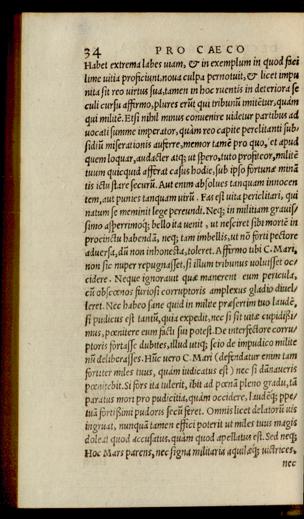 34 PRO CAECO
Habet extrema labes uiam, & in exemplum in quod faci
lime uitia proficiunt. noua culpa pernotuit, & licet impu
nita sit reo uirtus sua, tamen in hoc ruentis in deteriora se
culi cursu affirmo, plures erūt qui tribunū imitētur, quàm
qui militē. Etsi nihil minus conuenire uidetur partibus ad
uocati summe imperator, quàm reo capite perclitanti sub/
sidiū miserationis auferre, memor tamē pro quo, et apud
quem loquar, audacter atq; ut spero, tuto profiteor, militē
tuum quicquid afferat casus hodie, sub ipso fortunæ minā
tis ictu stare securū. Aut enim absolues tanquam innocen
tem, aut punies tanquam uirū. Fas est uita periclitari, qui
natum se meminit lege pereundi. Neq; in militiam grauis/
simo asperrimoq; bello ita uenit, ut nesciret sibi mortē in
procinctu habendā, neq; tam imbellis, ut nō forti pectore
aduersa, dū non inhonesta, toleret. Affirmo tibi C. Mari,
non sic nuper repugnasset, si illum tribunus uoluisset oc/
cidere. Neque ignoraui quæ manerent eum pericula,
cū obscœnos furiosi corruptoris amplexus gladio diuel/
leret. Nec habeo sane quid in milite præsertim tuo laudē,
si pudicus est tantū, quia expedit, nec si sit uitæ cupidissi/
mus, pœnitere eum facti sui potest. De interfectore corru/
ptoris fortasse dubites, illud utiq; scio de impudico milite
nū deliberasses. Hūc uero C. Mari (defendatur enim tam
fortiter miles tuus, quàm iudicatus est) nec si dānaueris
pœnitebit. Si fors ita tulerit, ibit ad pœnā pleno gradu, tā
paratus mori pro pudicitia, quàm occidere, laudēq; ppe/
tuā fortissimi pudoris secū feret. Omnis licet delatorū uis
ingruat, nunquā tamen effici poterit ut miles tuus magis
doleat quod accusatus, quàm quod apellatus est. Sed neq;
Hoc Mars parens, nec signa militaria aquilæq; uictrices,
nec